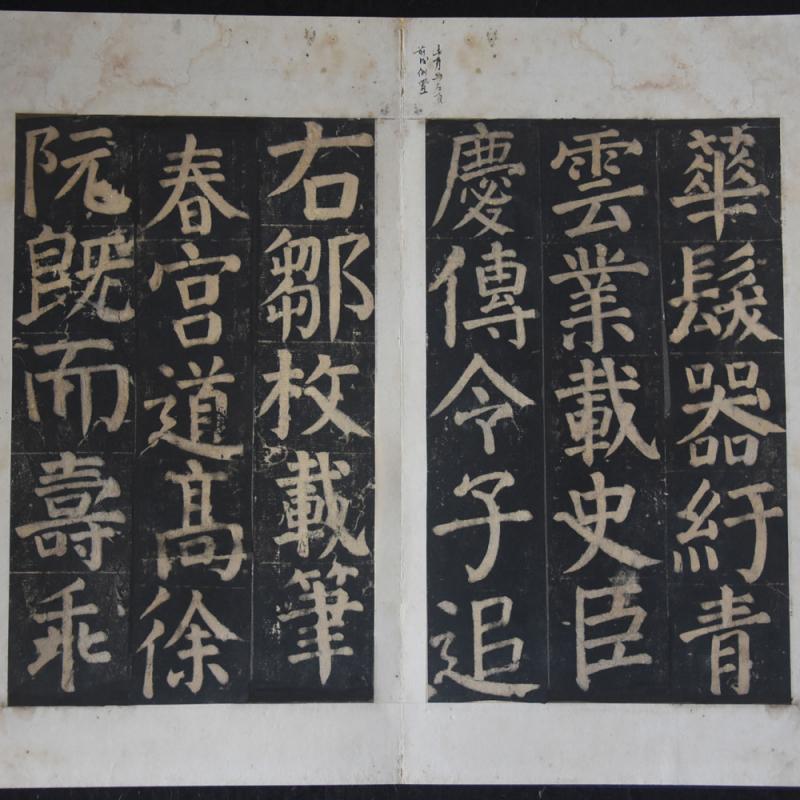 華髮器紆青
雲業載史臣
慶傳令子追
右鄒枚載筆
春宮道高徐
阮既而壽乖